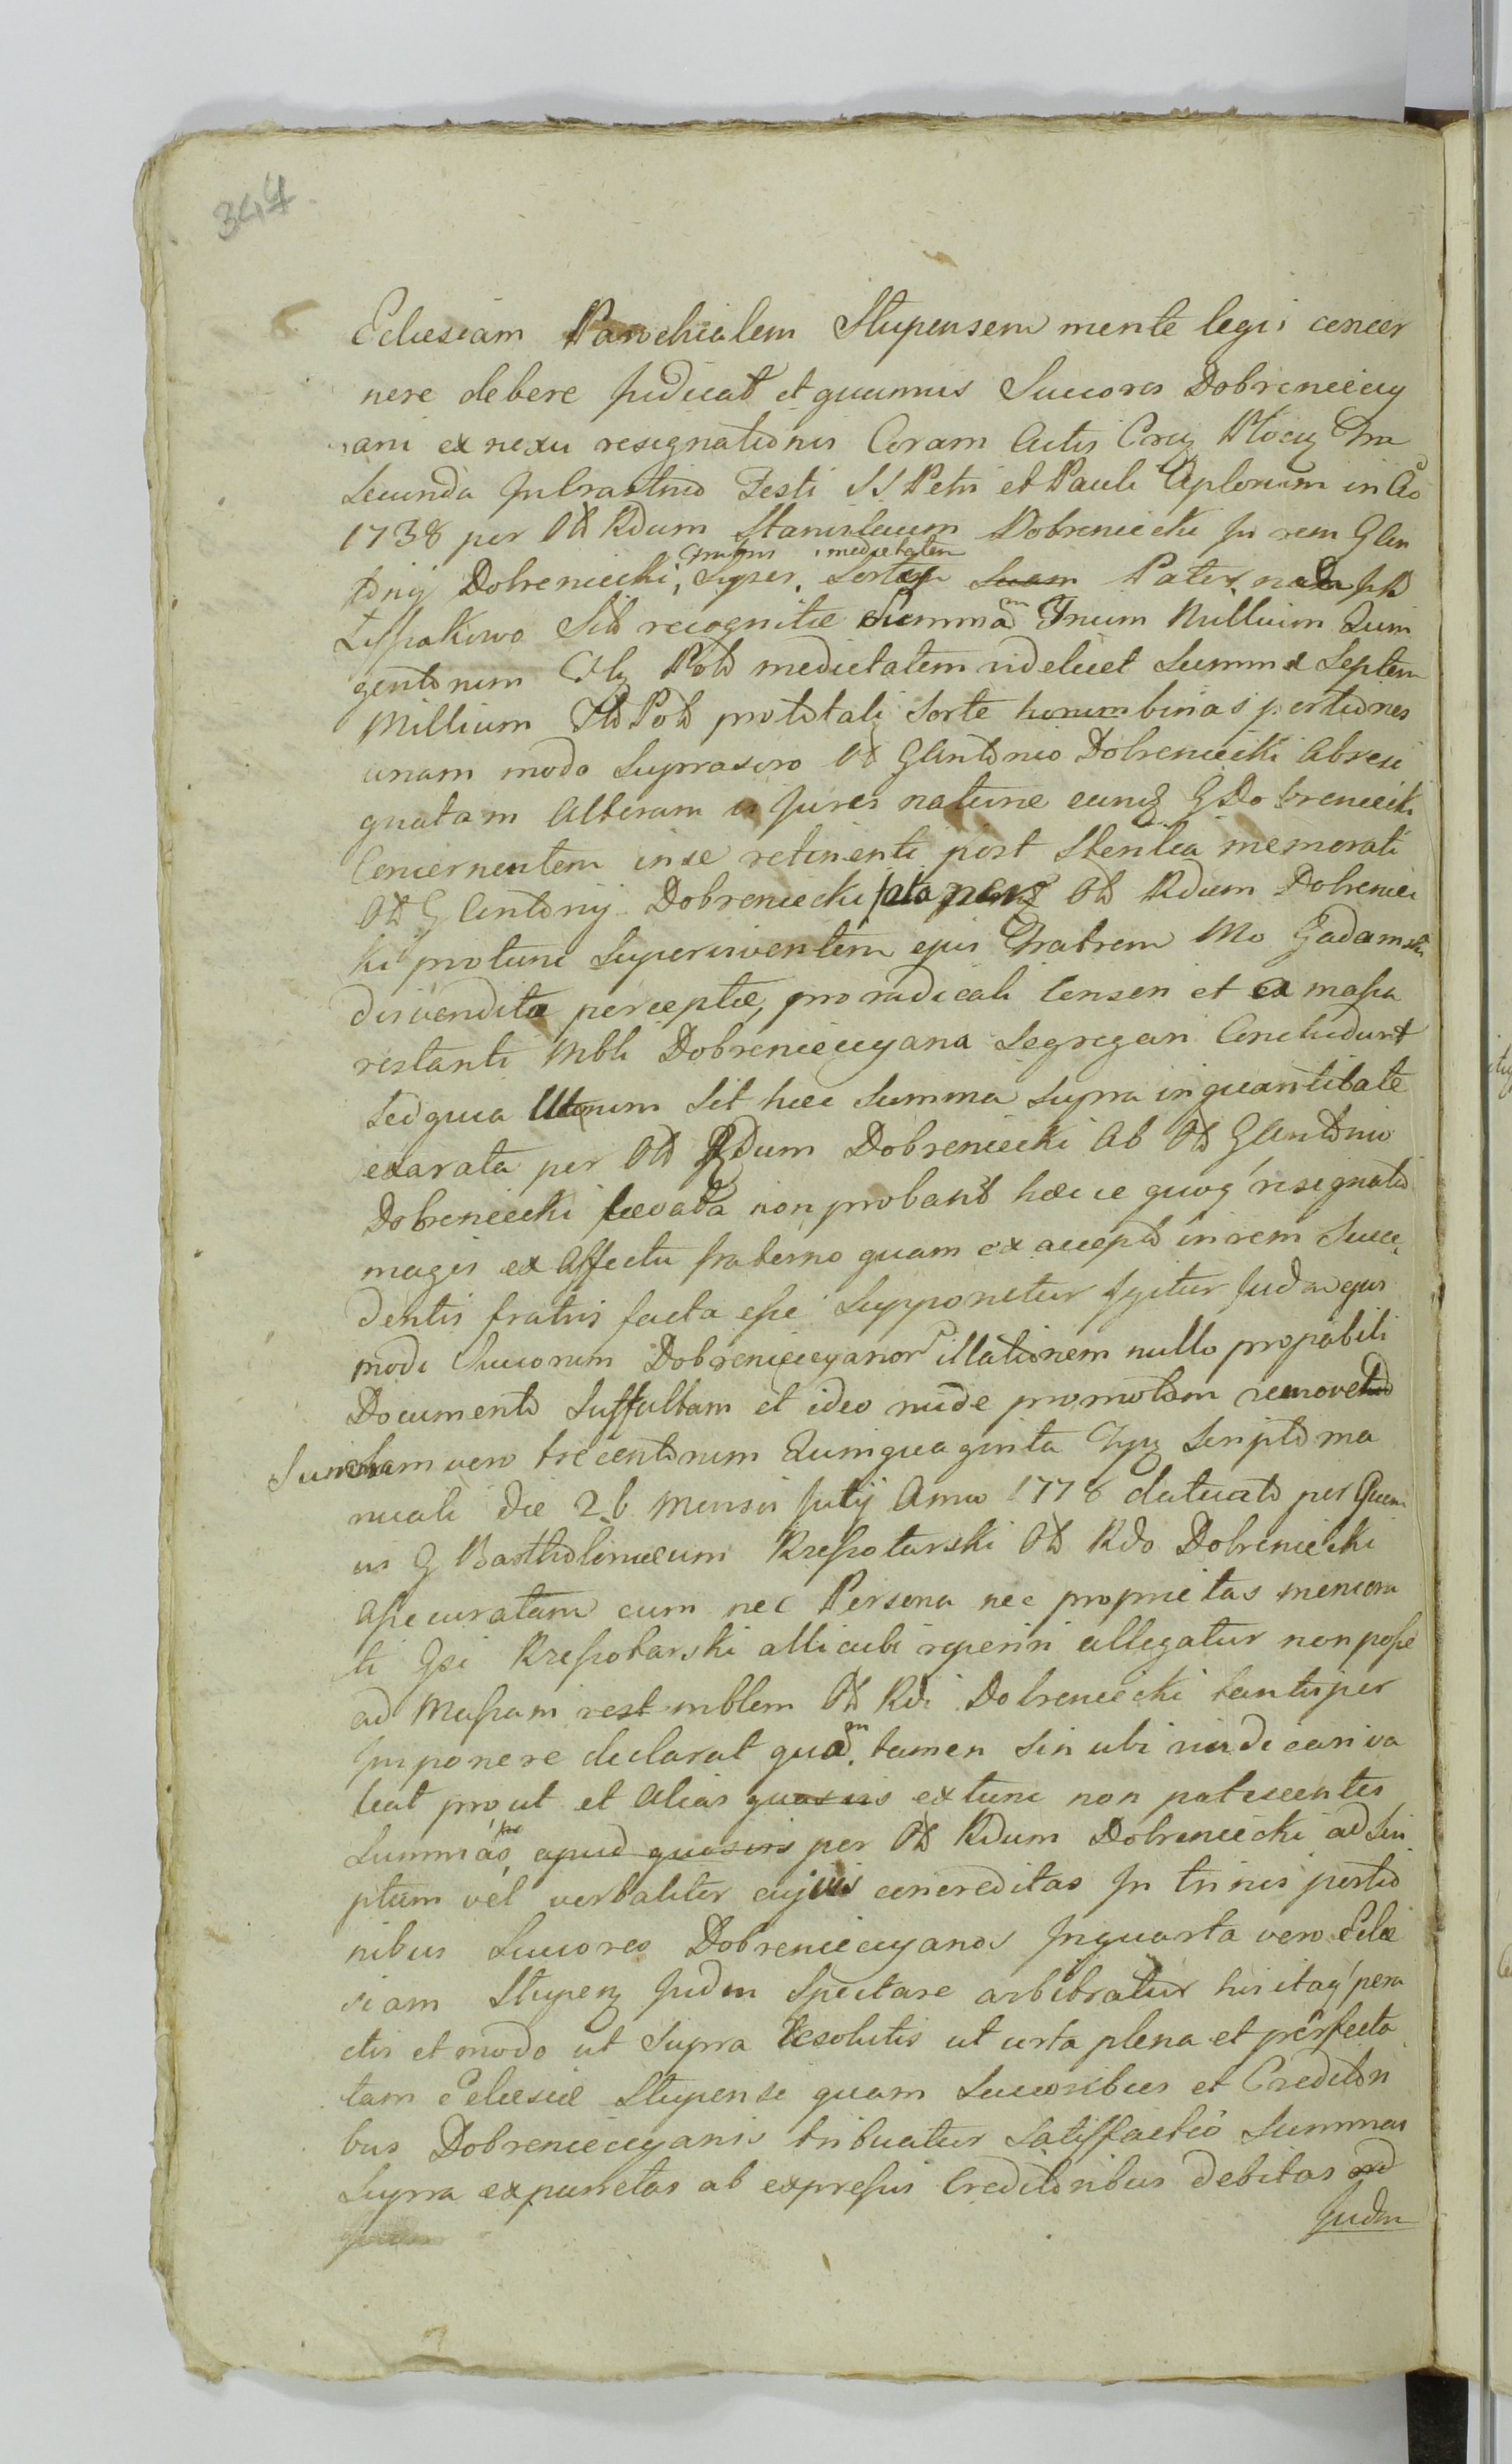 344
Eclesiam Parochialem Stupensem mente legis concer
nere debere Judicat et quamvis Succores Dobrenieccy
ani ex nexu resignationis Coram Actis Crz Plocz Fra
Secunda In Crastino Festi SS Petri et Pauli Aplorum in Ao
1738 per Ol Rdum Stanislaum Dobreniecki In rem GAn
tonij Dobreniecki, Fratris Super medietatem Sortem Suam Pater
Lissakowo Sib recognitæ Summam Trium Millium Quin
gentorum Flz Pol medietatem videlicet Summæ Septem
Millium Fl Pol pro totali Sorte horum binas portiones
unam modo Suprascro Ol GAntonio Dobreniecki Abresi
gnatam Alteram ex Jures naturæ eunq G Dobreniecki
Concernentem in se retinenti post memorati
Ol G Antonij Dobreniecki fata Ol Rdum Dobreniec
ki pro tunc Supervivente ejus Fratrem Mo Gadamski
disvendita perceptæ, pro radicali censeri et ex massa
restanti Mbli Dobrenieccyana Segregari Concludunt
Sed quia Utrum Sit hæc Summa Supra in quantitate
exarata per Ol Rdum Dobreniecki Ab Ol GAntonio
Dobreniecki levata non probant hæcce quoq resignatio
magis ex Affectu fraterno quam ex accepto in rem Succe
dentis fratris facta esse Supponitur Igitur Judm ejus
modi Succorum Dobrenieccyanor illationem nullo probabili
Documento Suffultam et ideo nude promotam removet
Summam vero trecentorum Quinquaginta Scripto ma
nuali Die 26 Mensis Julij Anno 1778 datuato per
G Bartholomæum Kressotarski Ol Rdo Dobreniecki
Assecuratam cum nec Persona nec proprietas memora
ti Gsi Kressotarski allicubi reperiri allegatur non posse
ad Massam rest mblem Ol Rdi Dobreniecki tantisper
Imponere declarat quam tamen Sin ubi vindicari va
leat prout et Alias quasvis extunc non patescentes
Summas apud quosvis per Ol Rdum Dobreniecki ad Scri
ptum vel verbaliter cujvis concreditas In trinis portio
nibus Succores Dobrenieccyanos In quarta vero Ecle
siam Stupenz Judm Spectare arbitratur his itaq pera
ctis et modo ut Supra resolutis ut certa plena et perfecta
tam Eclesiæ Stupensi quam Succoribus et Creditori
bus Dobrenieccyanis tribuatur Satisfactio Summas
Supra expunctas ab expressis Creditoribus debitas ad
Judm